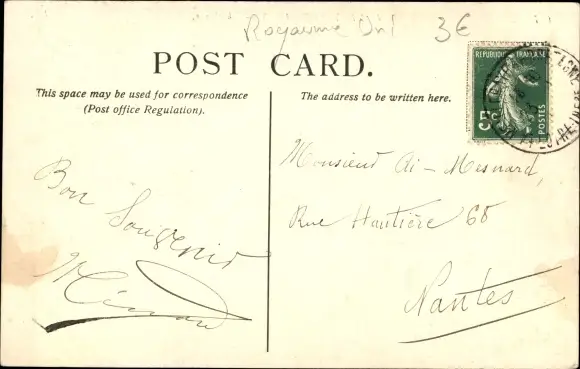 Royaume Uni 3€
POST CARD.
This space may be used for correspondence
(Post office Regulation).
The address to be written here.
REPUBLIQUE FRANÇAISE
5c
POSTES
Monsieur Ai-Mesnard,
Rue Hautière 68
Nantes
Bon
Souvenir